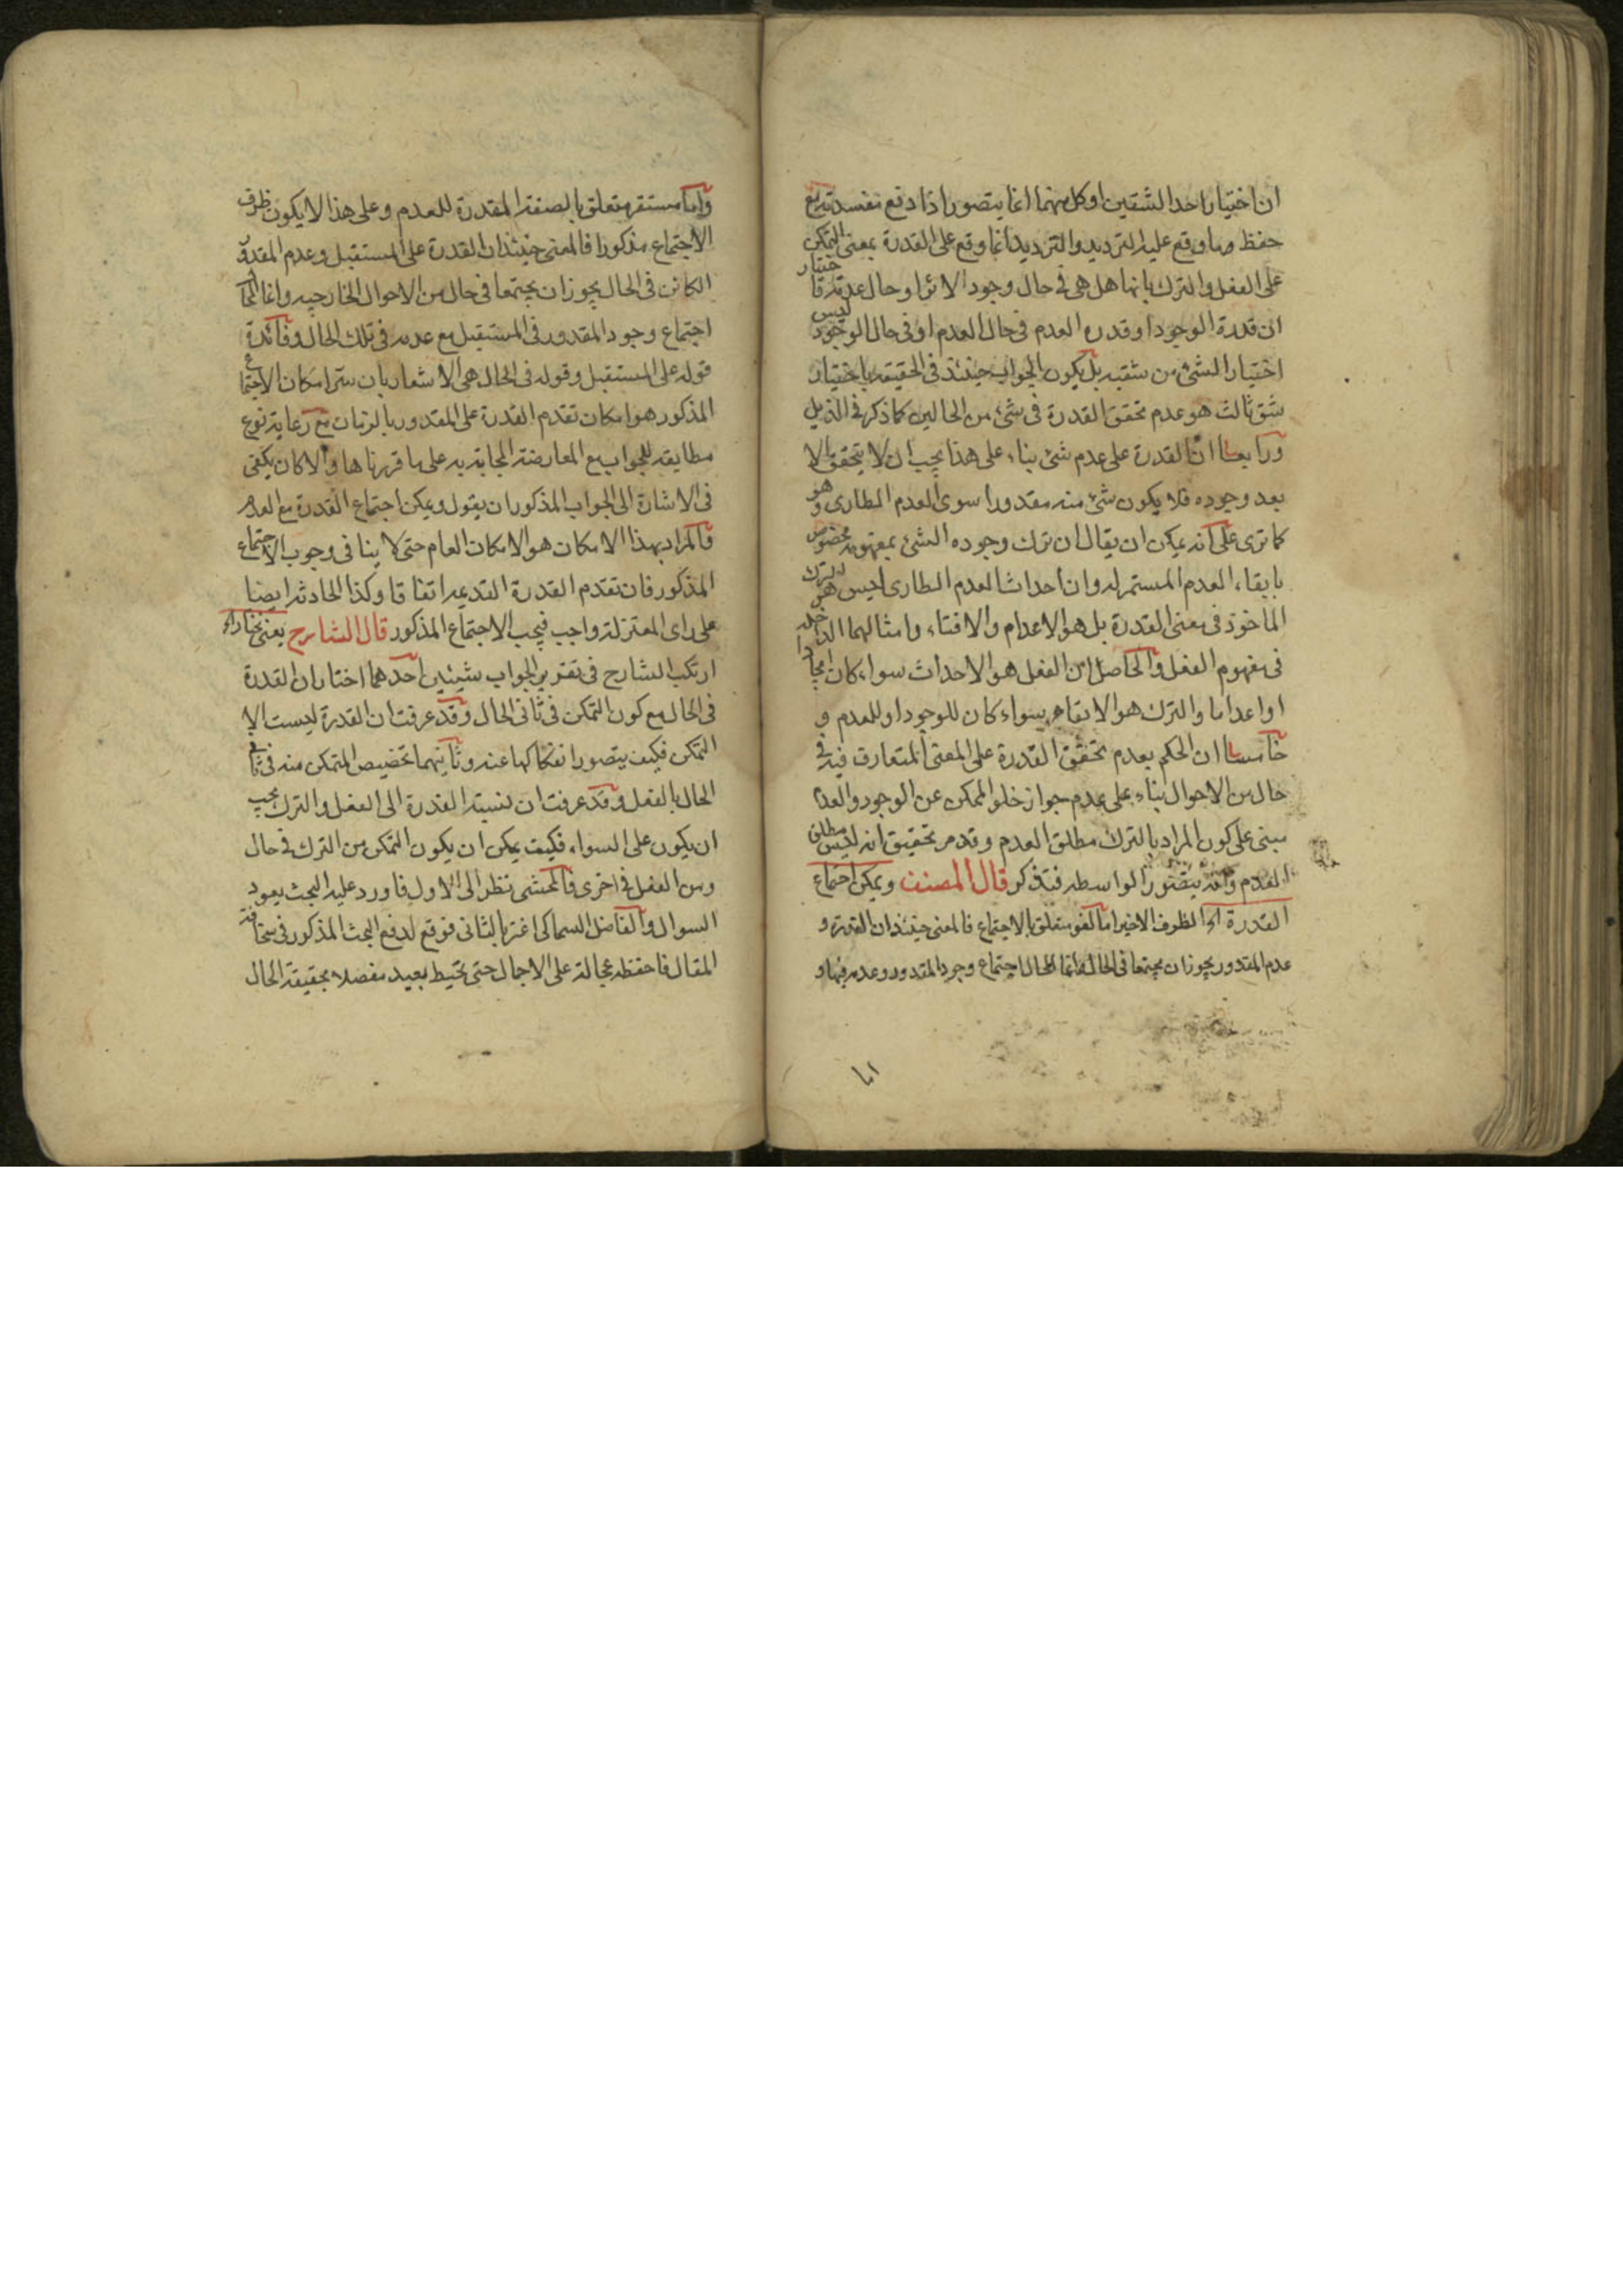 ان اختيار احد الشقين او كل منهما انما يتصور اذا دفع مفسدته مع
حفظ ما وقع عليه الترديد والترديد انما وقع على القدرة بمعنى التمكن
على الفعل والترك بانها هل هى فى حال وجود الاثر او حال عدمه
ان قدرة الوجود او قدره العدم فى حال العدم او فى حال الوجود ليس
اختيار الشئ من شقيه بل يكون الجواب حينئذ فى الحقيقه باختيار
شق ثالث هو عدم تحقق القدرة فى شئ من الحالين كما ذكر فى الذيل
ورابعا ان القدرة على عدم شئ بناء على هذا يجب ان لا يتحقق الا
بعد وجوده فلا يكون شئ منه مقدورا سوى العدم الطارى وهو
كما ترى على انه يمكن ان يقال ان ترك وجوده الشئ بمفهومه مخصوص
بابقاء العدم المستمر له وان احداث العدم الطارى ليس هو الترك
الماخوذ فى معنى القدرة بل هو الاعدام والافناء وامثالهما الداخله
فى مفهوم الفعل والحاصل ان الفعل هو الاحداث سواء كان ايجادا
او اعداما والترك هو الابقاء سواء كان للوجود او للعدم و
خامسا ان الحكم بعدم تحقق القدرة على المعنى المتعارف فيه فى
حال من الاحوال بناء على عدم جواز خلو الممكن عن الوجود والعدم
مبنى على كون المراد بالترك مطلق العدم وقد مر تحقيق انه ليس مطلق
العدم وانه يتصور الواسطه فتذكر قال المصنف ويمكن اجتماع
القدرة اه الظرف الاخير اما لغو متعلق بالاجتماع فالمعنى حينئذ ان القدرة و
عدم المقدور يجوز ان يجتمعا فى الحال وانما المحال اجتماع وجود المقدور وعدمه فيها و
واما مستقر متعلق بالصفة المقدرة للعدم وعلى هذا لا يكون ظرف
الاجتماع مذكورا فالمعنى حينئذ ان القدرة على المستقبل وعدم المقدور
الكائن فى الحال يجوز ان يجتمعا فى حال من الاحوال الخارجيه وانما المحال
اجتماع وجود المقدور فى المستقبل مع عدمه فى تلك الحال وفائدة
قوله على المستقبل وقوله فى الحال هى الاشعار بان سر امكان الاجتماع
المذكور هو امكان تقدم القدرة على المقدور بالزمان مع رعاية نوع
مطابقه للجواب مع المعارضة المجابة به على ما قررناها والا كان يكفى
فى الاشارة الى الجواب المذكور ان يقول ويمكن اجتماع القدرة مع العدم
فالمراد بهذا الامكان هو الامكان العام حتى لا ينافى وجوب الاجتماع
المذكور فان تقدم القدرة القديمه اتفاقا وكذا الحادثه ايضا
على راى المعتزلة واجب فيجب الاجتماع المذكور قال الشارح يعنى نختار اه
ارتكب الشارح فى تقرير الجواب شيئين احدهما اختار ان القدرة
فى الحال مع كون التمكن فى ثانى الحال وقد عرفت ان القدرة ليست الا
التمكن فكيف يتصور انفكاكها عنه وثانيهما تخصيص المتمكن منه فى ثانى
الحال بالفعل وقد عرفت ان نسبة القدرة الى الفعل والترك يجب
ان يكون على السواء فكيف يمكن ان يكون التمكن من الترك فى حال
ومن الفعل فى اخرى فالمحشى نظر الى الاول فاورد عليه البحث بعود
السوال والفاضل السماكى اغتر بالثانى فوقع لدفع البحث المذكور فى سخافة
المقال فاحفظه عجالة على الاجمال حتى تحيط بعيد مفصلا بحقيقة الحال